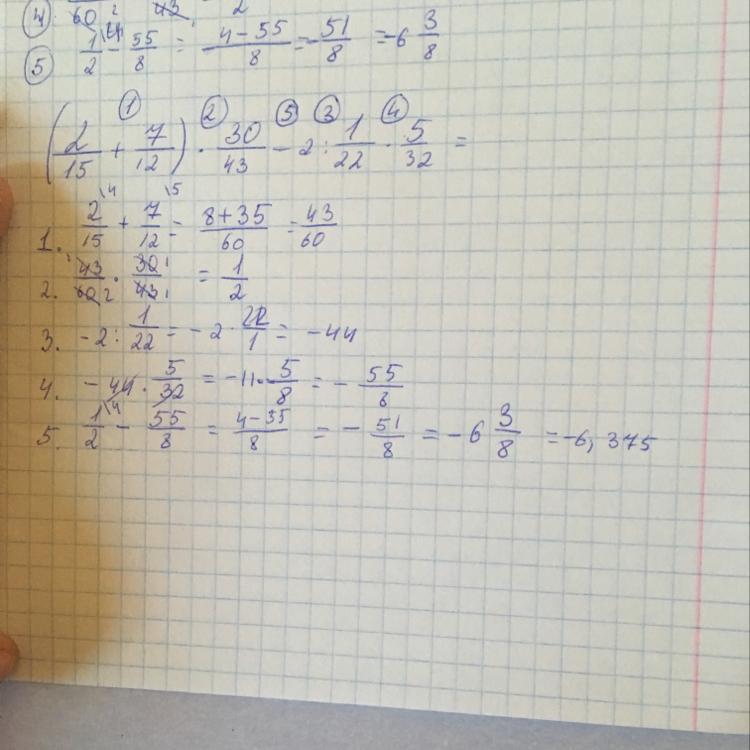 ④. 60 2 43 2
⑤ 1/2 \4 - 55/8 = 4-55/8 = -51/8 = -6 3/8
① ② ⑤ ③ ④
(2/15 + 7/12) · 30/43 - 2 : 1/22 · 5/32 =
1. 2/15 \4 + 7/12 \5 = 8+35/60 = 43/60
2. 43/60 1 2 · 30/43 1 1 = 1/2
3. -2 : 1/22 = -2 · 22/1 = -44
4. -44 · 5/32 = -11 · 5/8 = -55/8
5. 1/2 \4 - 55/8 = 4-35/8 = -51/8 = -6 3/8 = -6,375